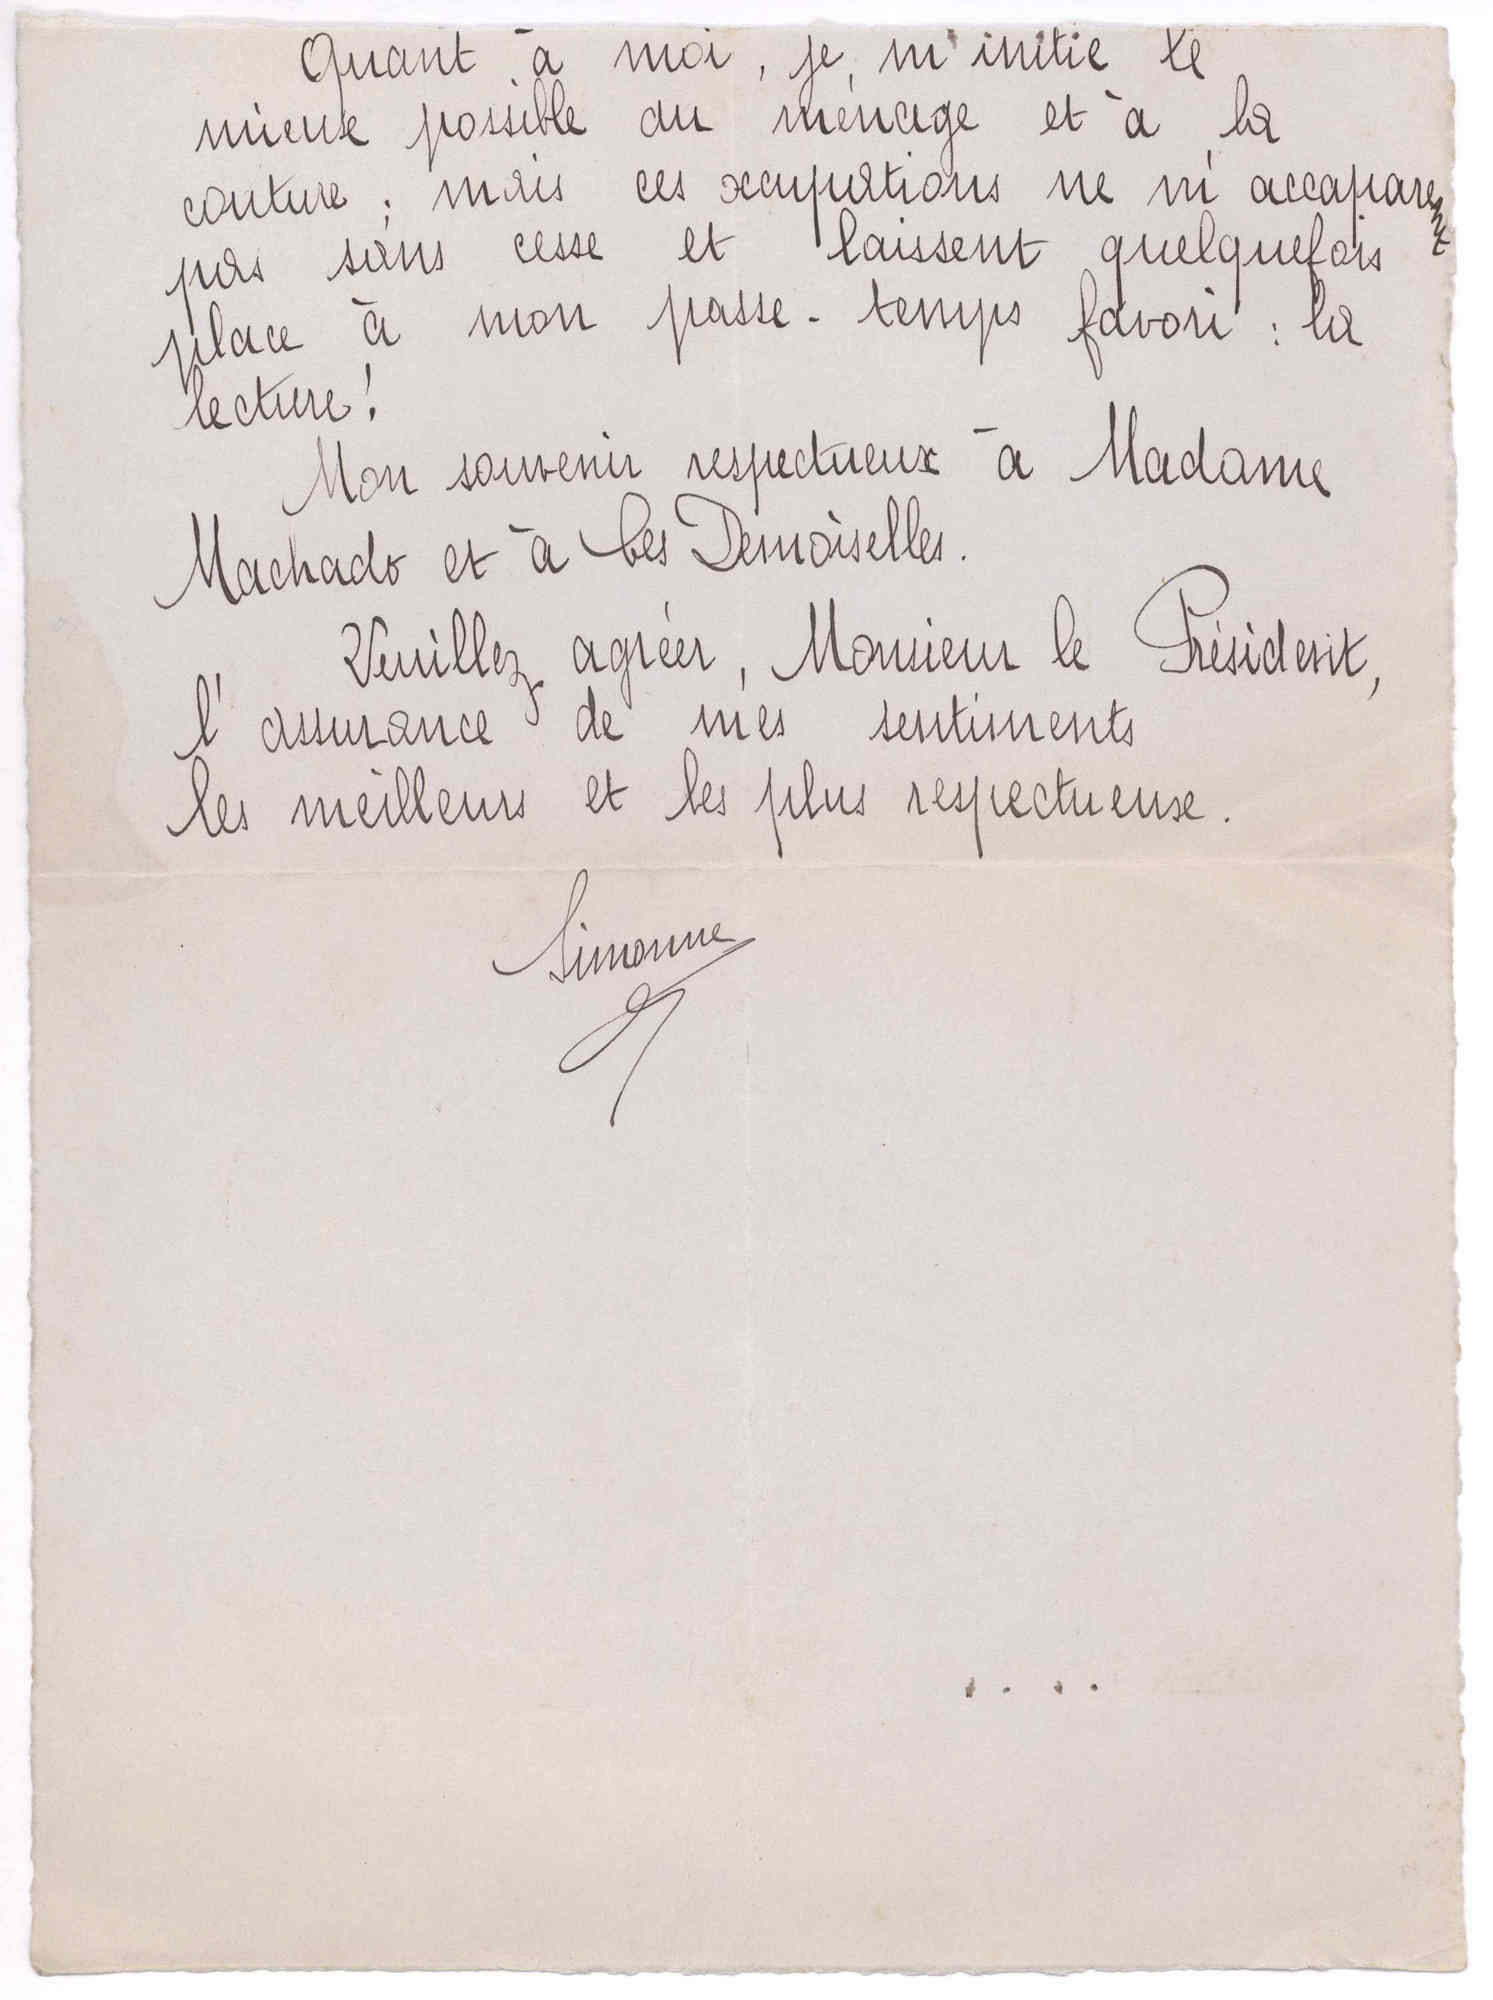 Quant à moi, je m'initie le
mieux possible au ménage et à la
couture ; mais ces occupations ne m'accaparent
pas sans cesse et laissent quelquefois
place à mon passe-temps favori : la
lecture !
Mon souvenir respectueux à Madame
Machado et à Ces Demoiselles.
Veuillez agréer, Monsieur le Président,
l'assurance de mes sentiments
les meilleurs et les plus respectueux.
Simonne